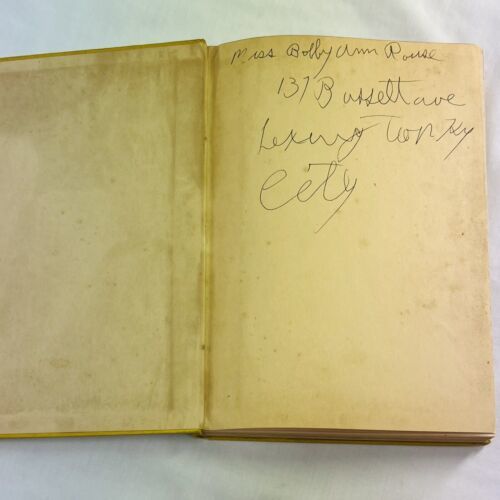 Miss Bobby Ann Rouse
137 Bassett ave
Lexing Ton Ky
City